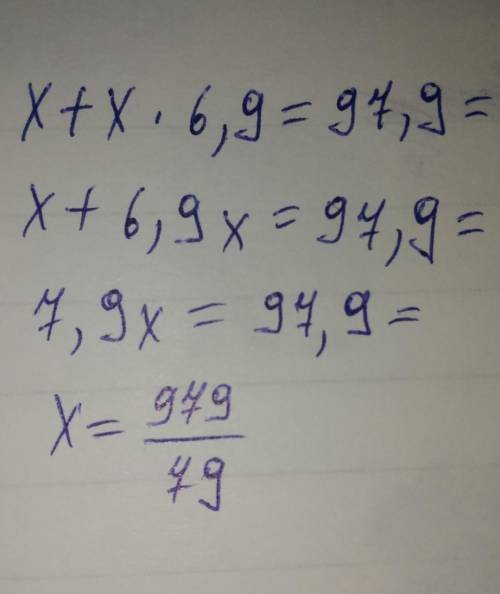 x + x · 6,9 = 97,9 =
x + 6,9x = 97,9 =
7,9x = 97,9 =
x = 979/79